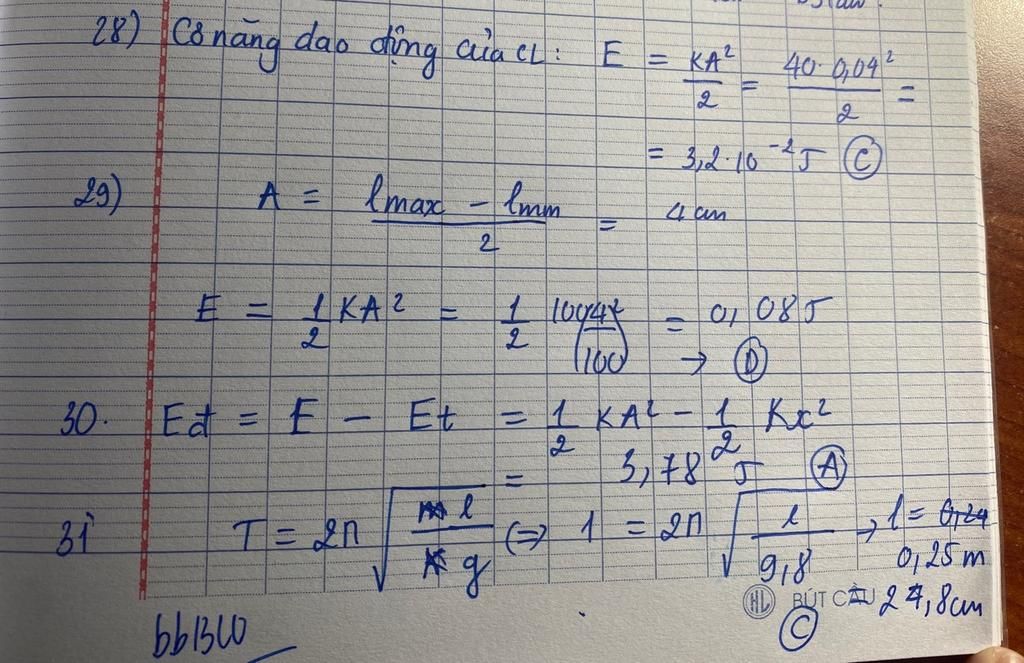 28) Cơ năng dao động của CL: E = KA²/2 = 40.0,04²/2 =
= 3,2.10⁻²J Ⓒ
29) A = lmax - lmin/2 = 4cm
E = 1/2 KA² = 1/2 100(4/100)² = 0,08J
→ Ⓓ
30. Eđ = E - Et = 1/2 KA² - 1/2 Kx²
= 3,78 J Ⓐ
31 T = 2π√l/g ⇔ 1 = 2π√l/9,8 → l =
0,25m
BÚT 24,8cm
Ⓒ